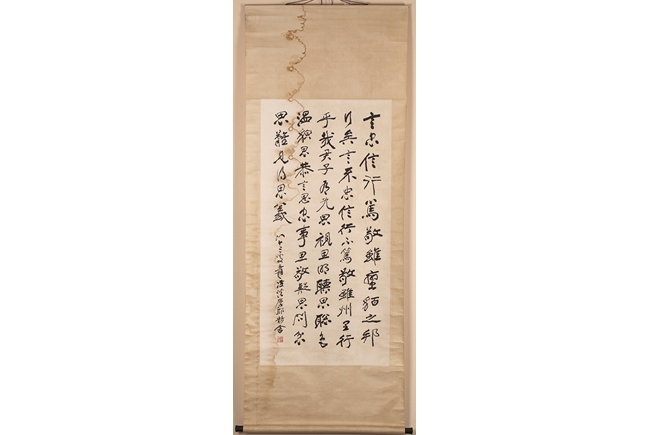 言忠信行篤敬雖蠻貊之邦
行矣言不忠信行不篤敬雖州里行
乎哉君子有九思視思明聽思聰色
温貌思恭言思忠事思敬疑思問忿
思難見得思義